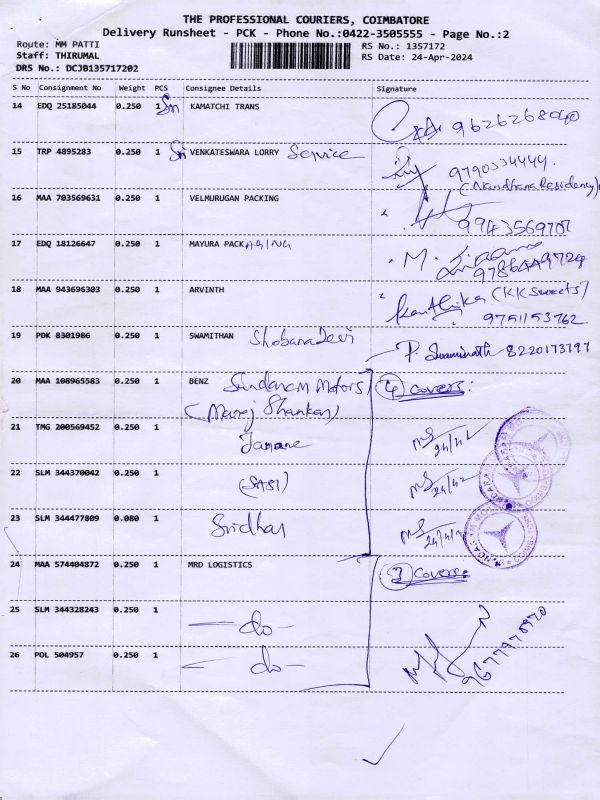 THE PROFESSIONAL COURIERS, COIMBATORE
Delivery Runsheet - PCK - Phone No.:0422-3505555 - Page No.:2
Route: MM PATTI
RS No.: 1357172
Staff: THIRUMAL
RS Date: 24-Apr-2024
DRS No.: DCJB135717202
S No Consignment No Weight PCS Consignee Details Signature
14 EDQ 25185044 0.250 1 Sri KAMATCHI TRANS
9626268040
15 TRP 4895283 0.250 1 Sri VENKATESWARA LORRY Service
9790334444.
(Nandhana Residency)
16 MAA 703569631 0.250 1 VELMURUGAN PACKING
9943569707
17 EDQ 18126647 0.250 1 MAYURA PACKAGING
M.
9786449724
18 MAA 943696303 0.250 1 ARVINTH
Karthika (KK Sweets)
9751153762
19 PDK 8301986 0.250 1 SWAMITHAN Shobana Devi
P. Swaminath 8220173797
20 MAA 108965583 0.250 1 BENZ Sundaram Motors (4) covers:
(Manoj Shankar)
21 TMG 200569452 0.250 1
24/4
22 SLM 344370042 0.250 1 (SASI)
24/4
23 SLM 344477809 0.080 1 Sridhar
24/4
24 MAA 574404872 0.250 1 MRD LOGISTICS (3) covers:
25 SLM 344328243 0.250 1 -do-
26 POL 504957 0.250 1 -do-
9677978970